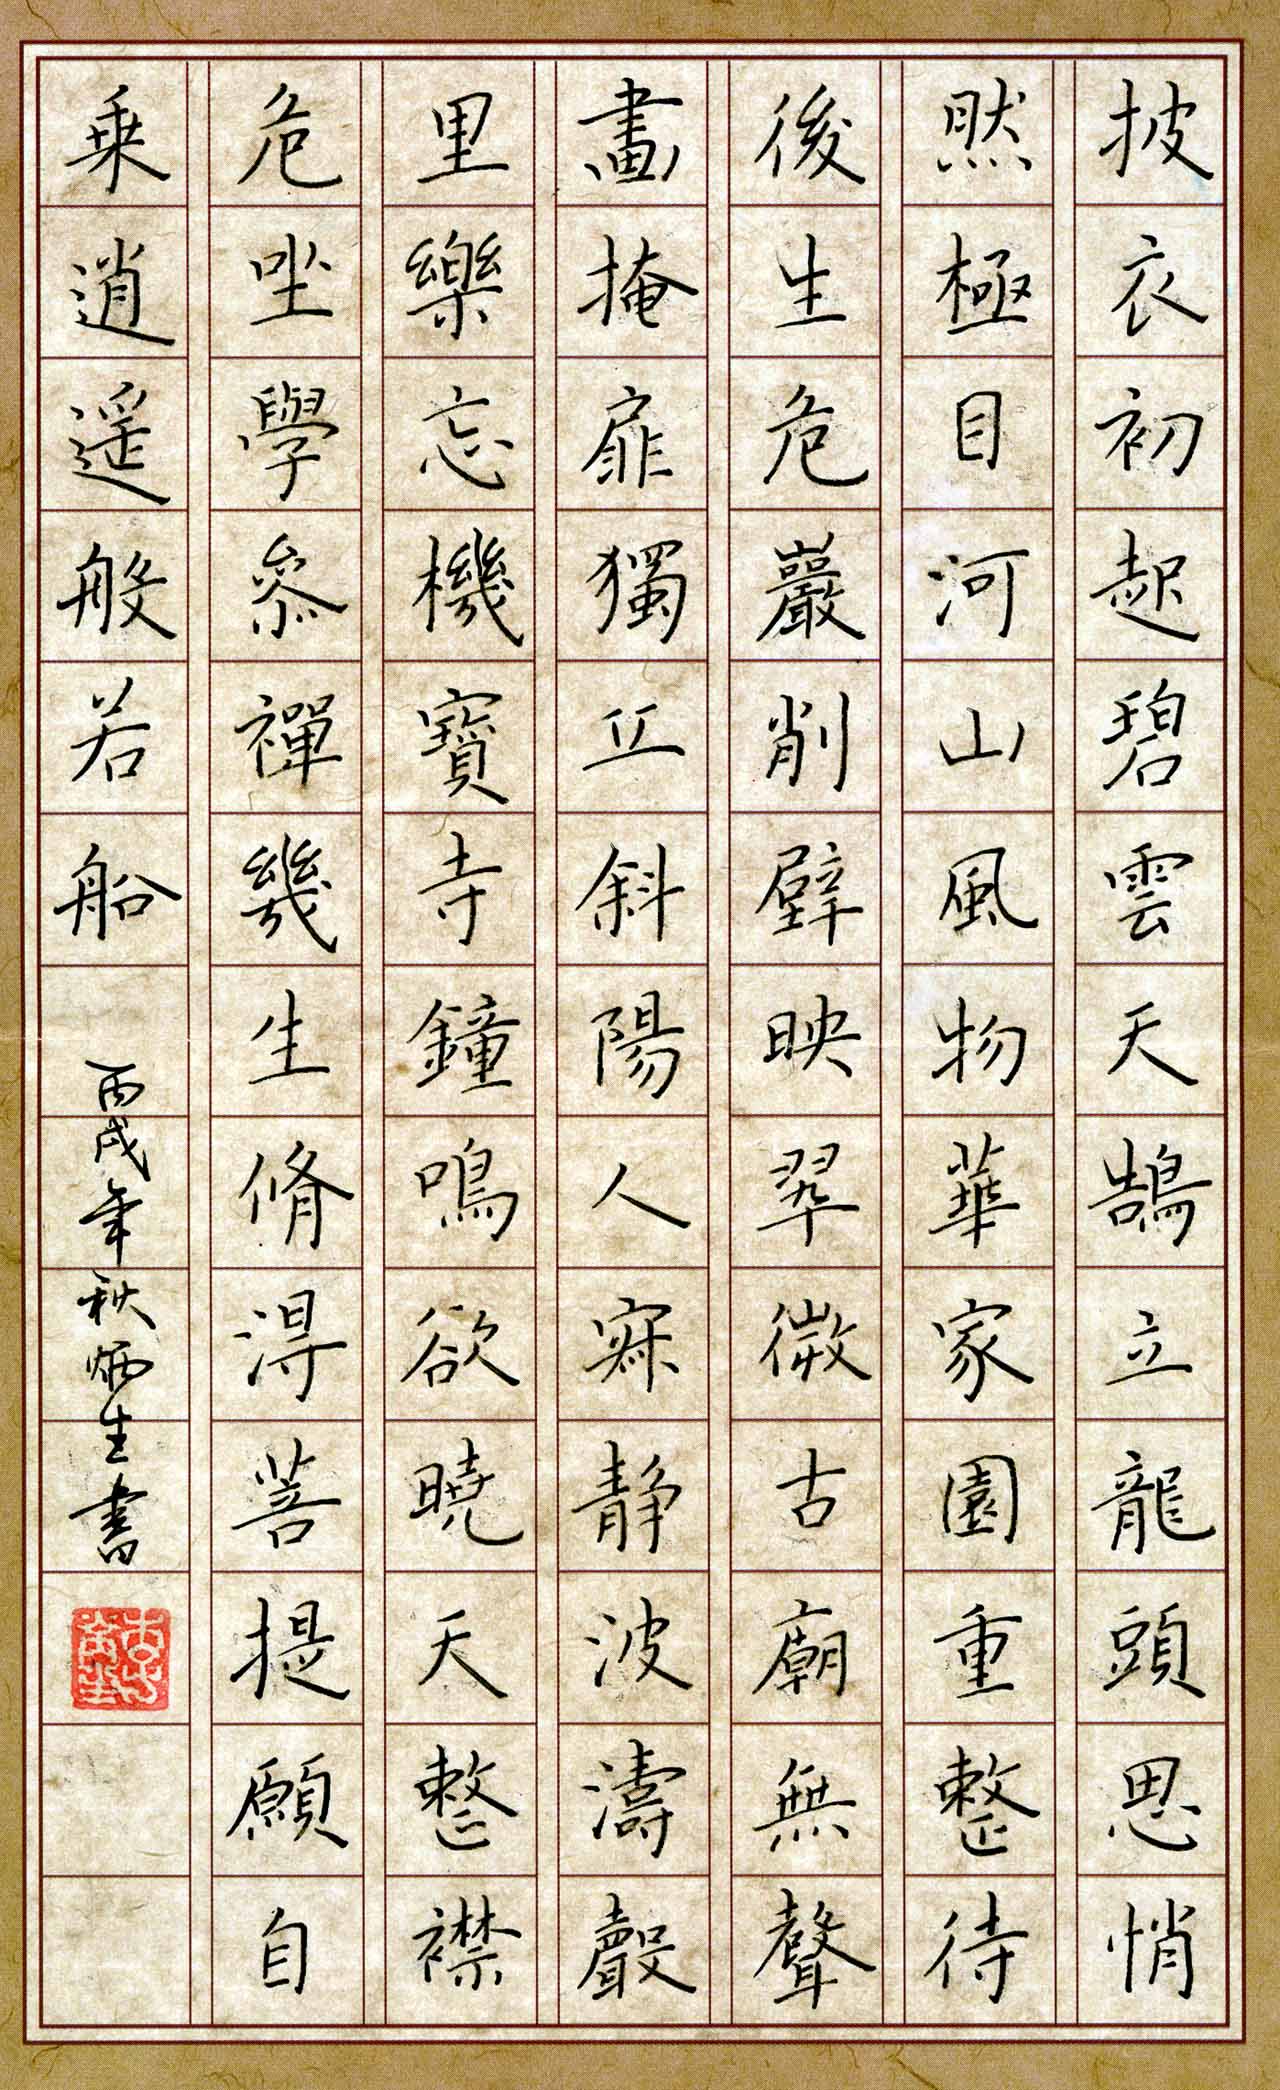 披衣初起碧雲天鵠立龍頭思悄
然極目河山風物華家園重整待
後生危巖削壁映翠微古廟無聲
畫掩扉獨立斜陽人寂靜波濤聲
里樂忘機寶寺鐘鳴欲曉天整襟
危坐學參禪幾生脩得菩提願自
乘逍遥般若船
丙戌年秋炳生書